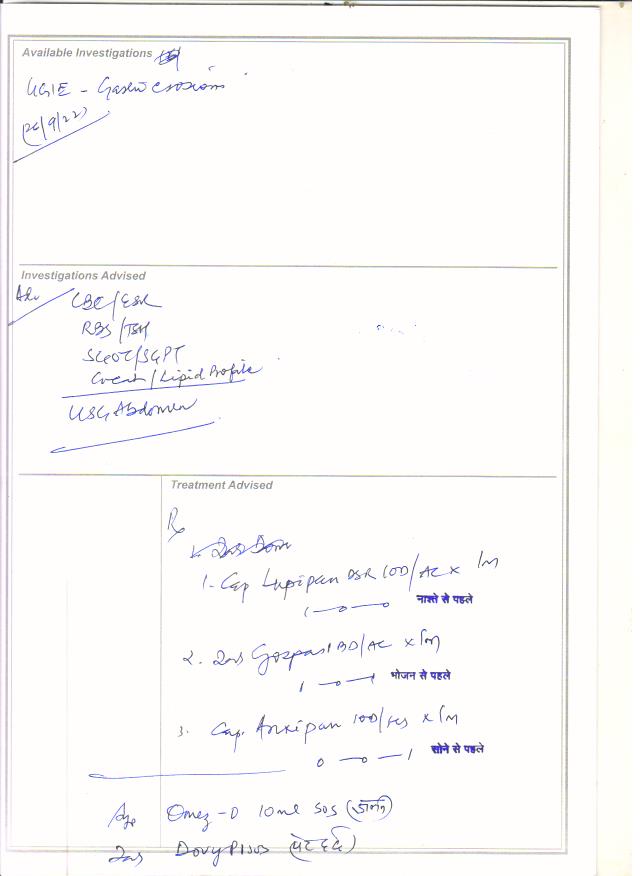 Available Investigations
UGIE - Gastric erosions
(26/9/22)
Investigations Advised
Adv
CBC/ESR
RBS/TSH
SGOT/SGPT
Creat/Lipid Profile
USG Abdomen
Treatment Advised
Rx
1. Cap Lupipan DSR 1OD/AC x 1m
1-0-0 नाश्ते से पहले
2. Tab 1BD/AC x 1m
1-0-1 भोजन से पहले
3. Cap. Anxipan 1OD/HS x 1m
0-0-1 सोने से पहले
Syp Omez-D 10ml SOS (जलन)
Tab SOS (पेट दर्द)